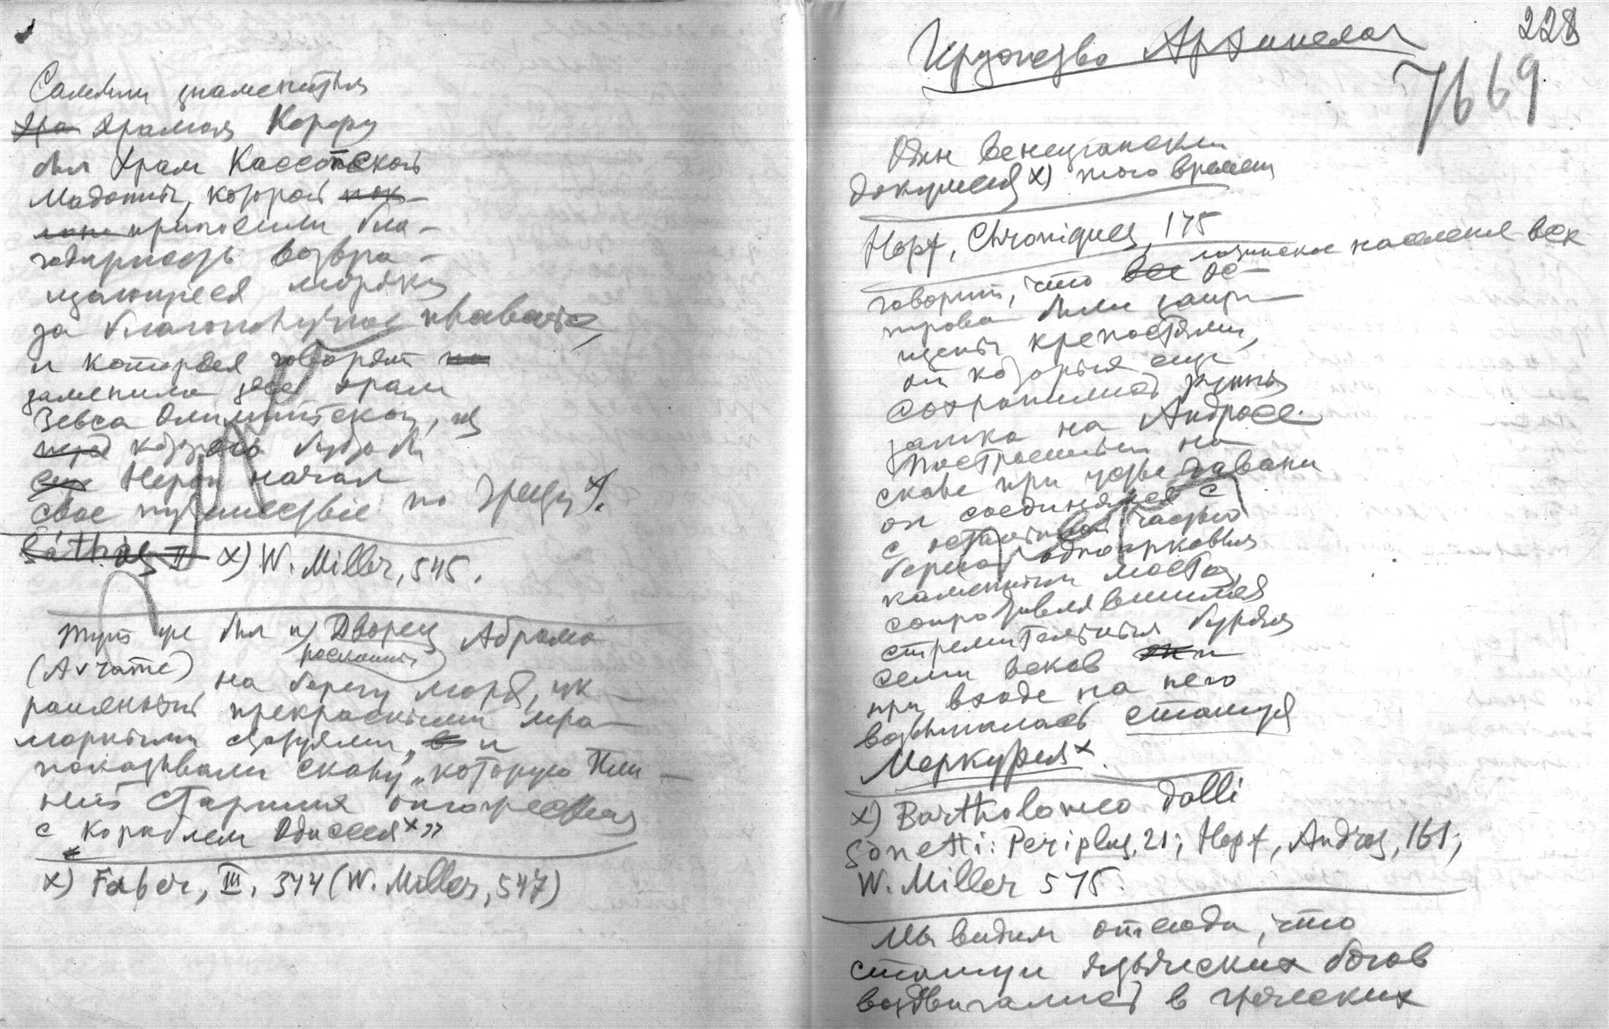 Самым знаменитым
храмом Корфу
был храм Кассопской
Мадонны, которой
приносили бла-
годарность возвра-
щающиеся моряки
за благополучное плавание,
и которая говорят
заменила здесь храм
Зевса Олимпийского, из
которого будто бы
Нерон начал
свое путешествие по Греции x).
x) W. Miller, 545.
Тут же был и Дворец Абрама
роскошный
(Avrame) на берегу моря, ук-
рашенный прекрасными мра-
морными статуями, и
показывали скалу, которую Пли-
ний Старший отожествлял
с „Кораблем Одиссея x"
x) Faber, III, 344 (W. Miller, 547)
228
Герцогство Архипелаг
7669
Один венецианский
документ x) того времени
Hopf, Chroniques, 175
латинское население всех
говорит, что ос-
трова были защи-
щены крепостями,
от которых еще
сохранились руины
замка на Андросе.
Построенный на
скале при устье гавани
он соединялся с
с остальной частью
берега одноарковым
каменным мостом,
сопротивлявшимся
стремительным бурям
семи веков и
при входе на него
возвышалась статуя
Меркурия x.
x) Bartholomeo dalli
Sonetti: Periplus, 21; Hopf, Andros, 161;
W. Miller 575.
Мы видим отсюда, что
статуи языческих богов
воздвигались в греческих